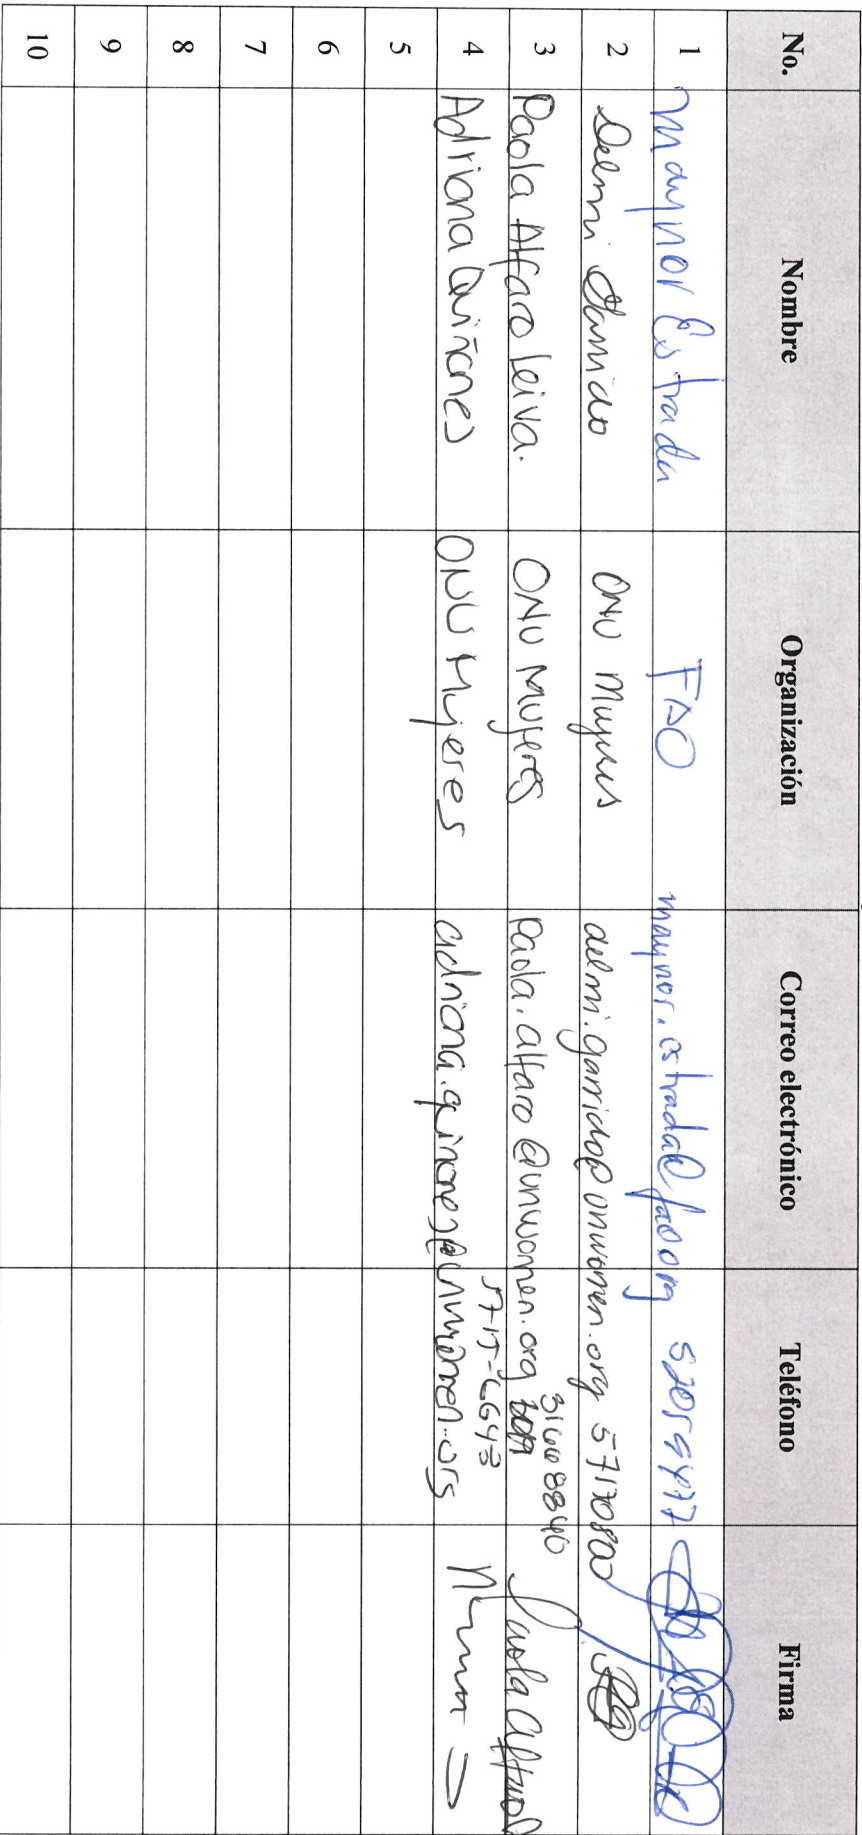 No. Nombre Organización Correo electrónico Teléfono Firma
1 Maynor Estrada FAO maynor.estrada@fao.org
2 Delmi Garrido ONU Mujeres delmi.garrido@unwomen.org 57170800
3 Paola Alfaro Leiva. ONU Mujeres paola.alfaro@unwomen.org 31668840 Paola Alfaro
4 Adriana Quiñones ONU Mujeres adriana.quinones@unwomen.org 5715-6643
5
6
7
8
9
10